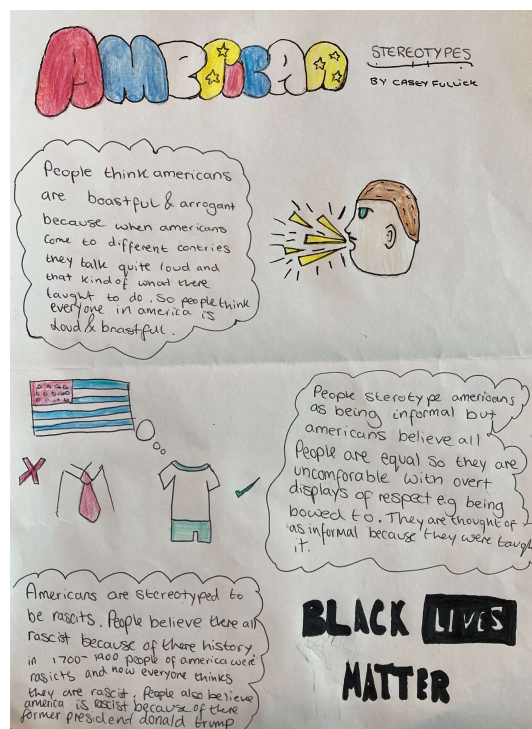 AMERICAN
STEREOTYPES
BY CASEY FULLICK
People think americans
are boastful & arrogant
because when americans
come to different contries
they talk quite loud and
that kind of what there
taught to do. So people think
everyone in america is
loud & boastful.
People sterotype americans
as being informal but
americans believe all
People are equal so they are
uncomforable with overt
displays of respect e.g being
bowed to. They are thought of
as informal because they were taugh
it.
Americans are stereotyped to
be rascits. People believe there all
rascist because of there history
in 1700-1900 people of america were
rasicts and now everyone thinks
they are rascist. People also believe
america is rascist because of there
former presidend donald trump
BLACK LIVES
MATTER